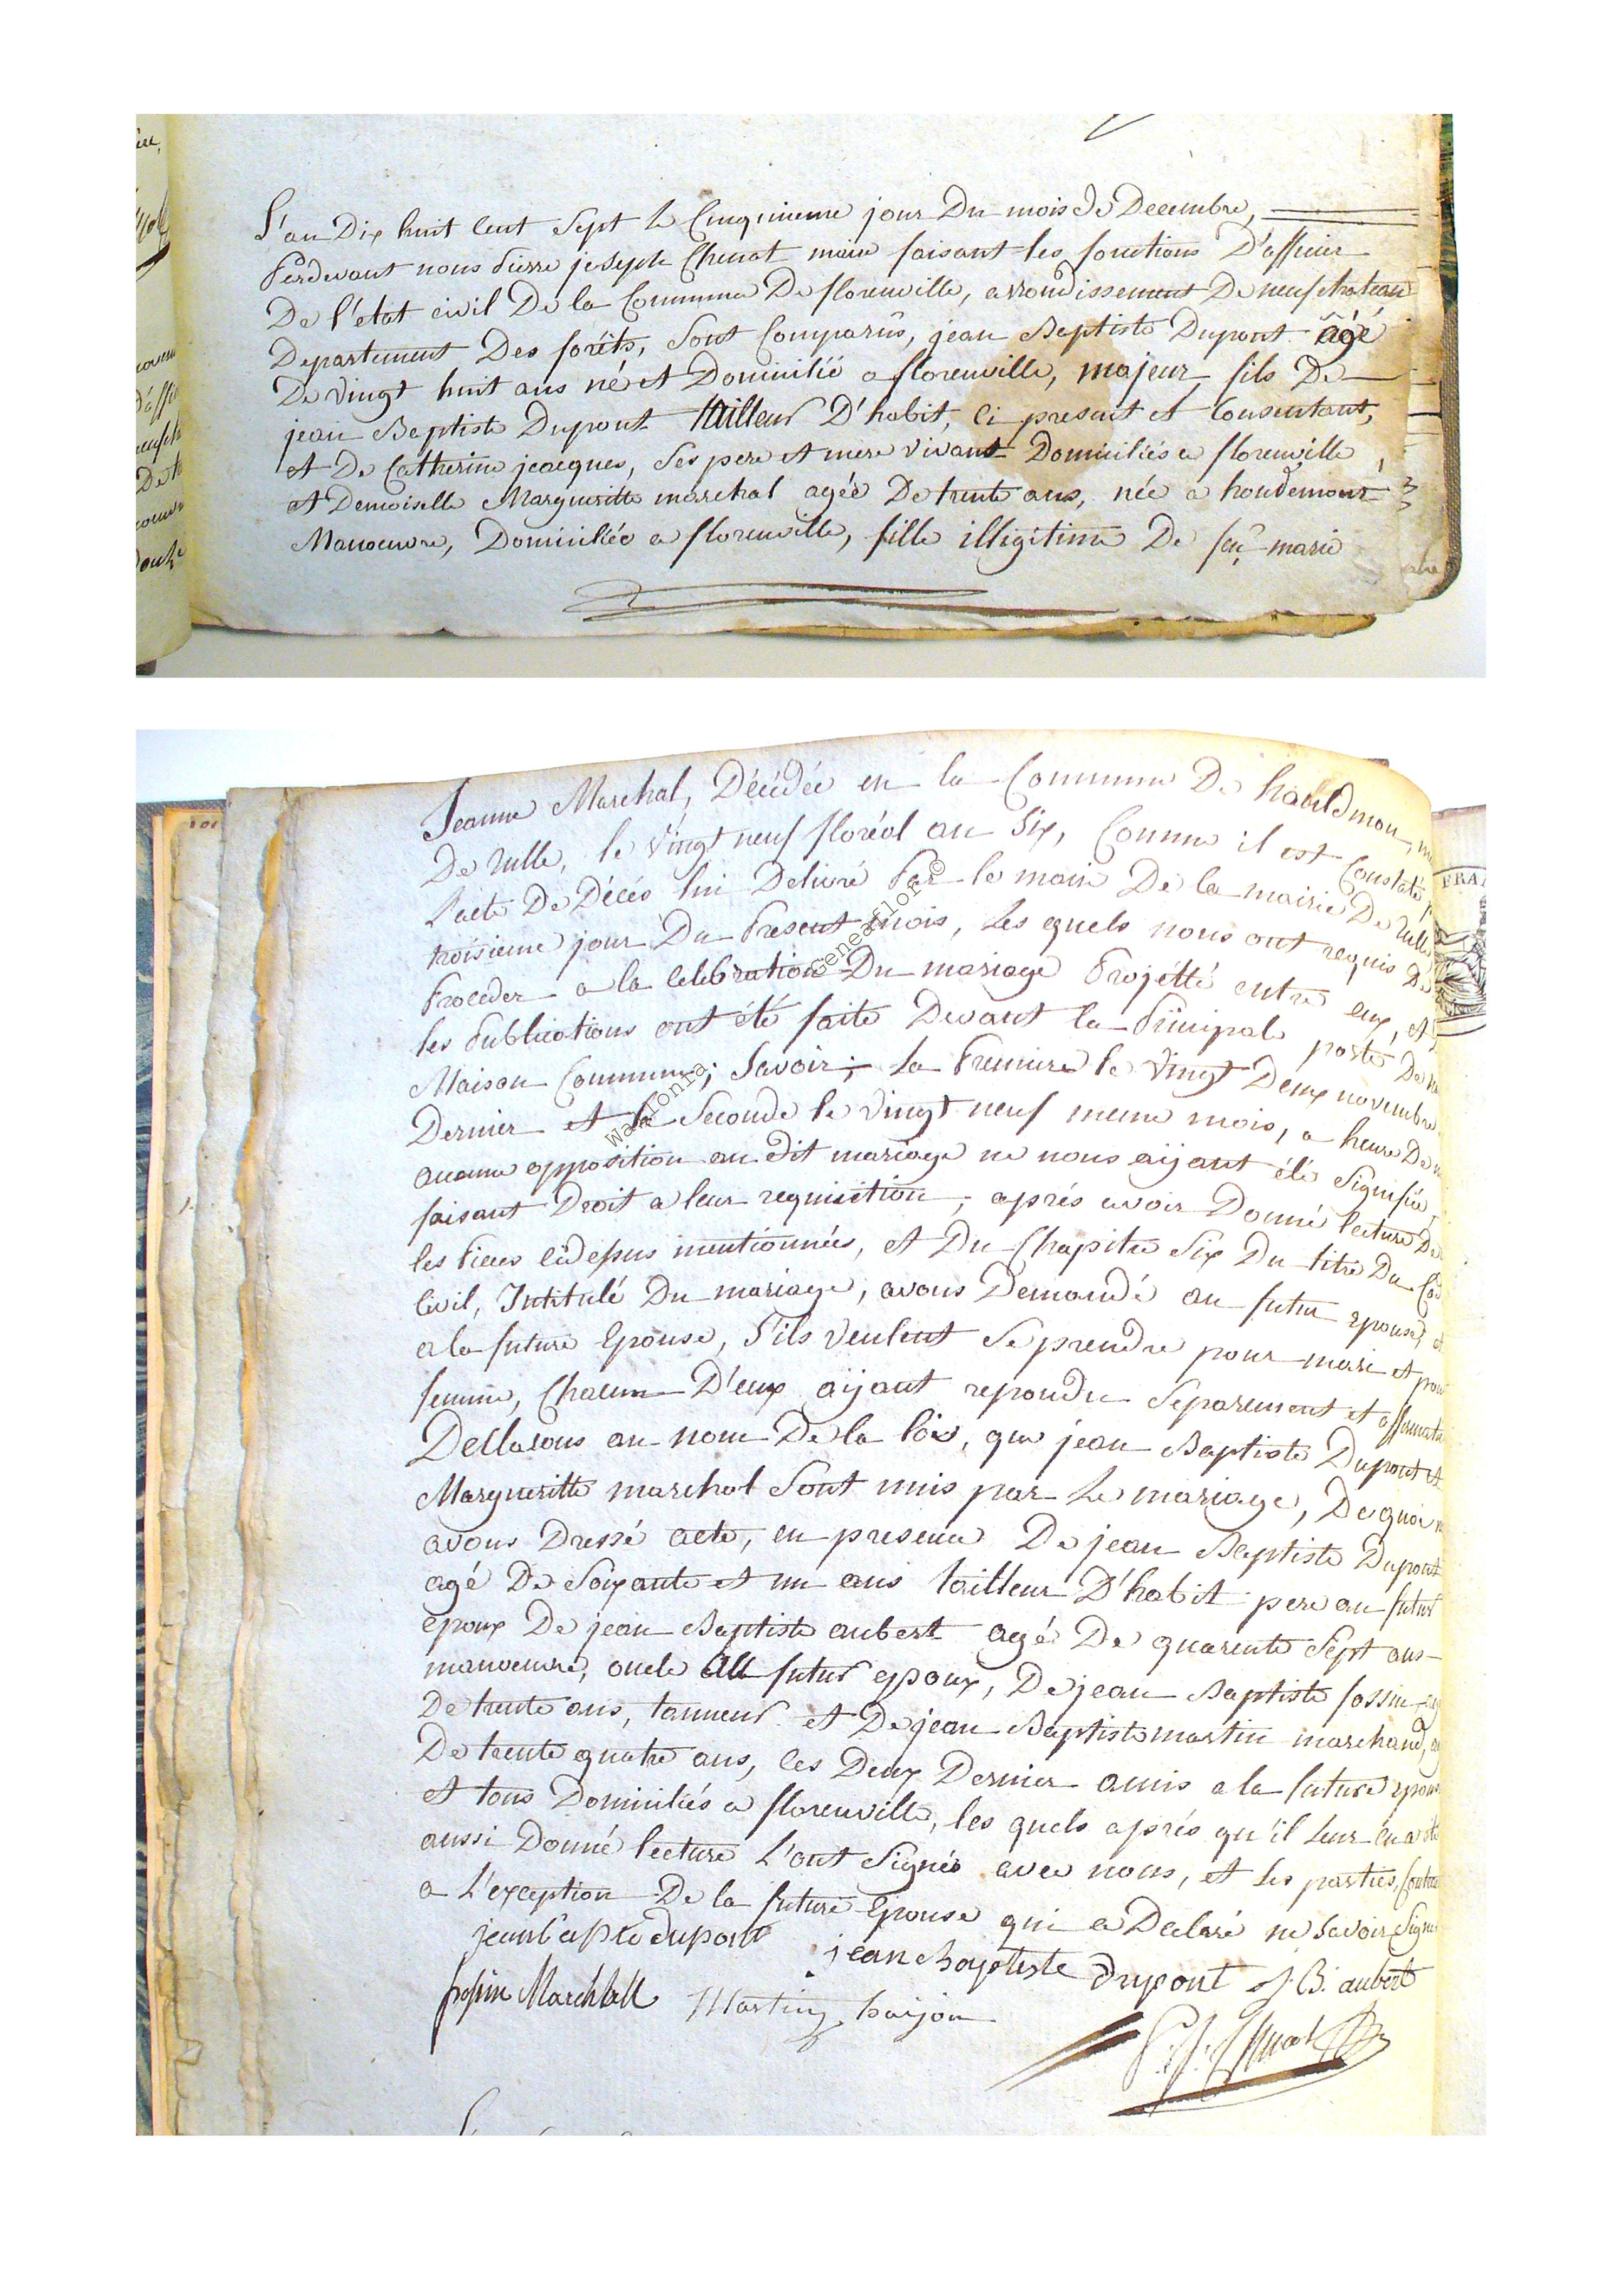 L'an Dix huit Cent Sept Le Cinquieme jour Du mois de Decembre,
Perdevant nous Pierre joseph Chenot maire faisant les fonctions D'officier
De l'etat civil De la Commune De florenville, arrondissement De neufchateau
Departement Des forêts, Sont Comparûs, jean Baptiste Dupont agé
De vingt huit ans né et Domicilié a florenville, majeur, fils De
jean Baptiste Dupont tailleur D'habit, Ci present et Consentant,
et De Catherine jacques, Ses pere et mere vivant Domiciliés a florenville
et Demoiselle Margueritte marchal agée De trente ans, née a houdemont
Manoeuvre, Domiciliée a florenville, fille illigitime De feu marie
Jeanne Marchal, Décédée en la Commune De houldmon,
De rulle, le vingt neuf floréal an Six, Comme il est Constaté
l'acte De Décés lui Delivré Par le maire De la mairie De rulle
troisieme jour Du Present mois, Les quels nous ont requis De
Proceder a la celebration Du mariage Projétté entre eux, et
les Publications ont été faite Devant la Principal porte De
Maison Commune; Savoir; La Premiere le vingt Deux novembre
Dernier et la Seconde le vingt neuf meme mois, a heure De
aucune opposition au dit mariage ne nous aijant été Signifié,
faisant Droit a leur requisition, aprés avoir Donné lecture De
les Pieces cidessus mentionnées, et Du Chapitre Six Du titre Du
Civil, Intitulé Du mariage, avons Demandé au futur epouse,
a la future Epouse, S'ils veulent Se prendre pour mari et pour
femme, Chacun D'eux aijant repondu Separement et
Declarons au nom De la loi, que jean Baptiste Dupont et
Margueritte marchal Sont unis par Le mariage, De quoi
avons Dressé acte, en presence De jean Baptiste Dupont
agé De Soixante et un ans tailleur D'habit pere au futur
epoux De jean Baptiste aubert agé De quarente Sept ans
manoeuvre, oncle au futur epoux, De jean Baptiste fossin
De trente ans, tanneur et De jean Baptiste martin marchand,
De trente quatre ans, les Deux Dernier amis a la future epouse
et tous Domiciliés a florenville, les quels aprés qu'il Leur en a été
aussi Donné lecture L'ont Signés avec nous, et Les parties,
a L'exception De la future Epouse qui a Declaré ne Savoir Signer
jean bapte dupont jean baptiste dupont J. B. aubert
fossin Marchall Martin
P. J. Chenot
Wallonia Geneaflor ©
FRA